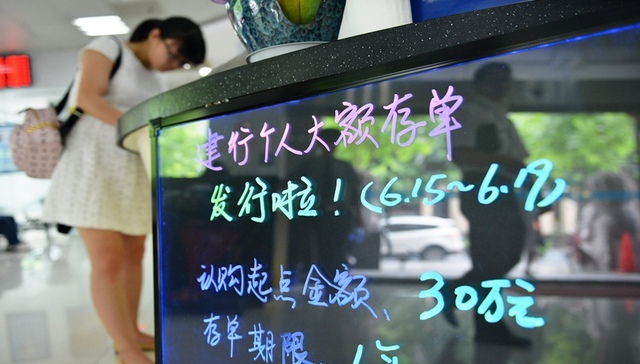 建行个人大额存单
发行啦！(6.15~6.19)
认购起点金额、30万元
存单期限、1年